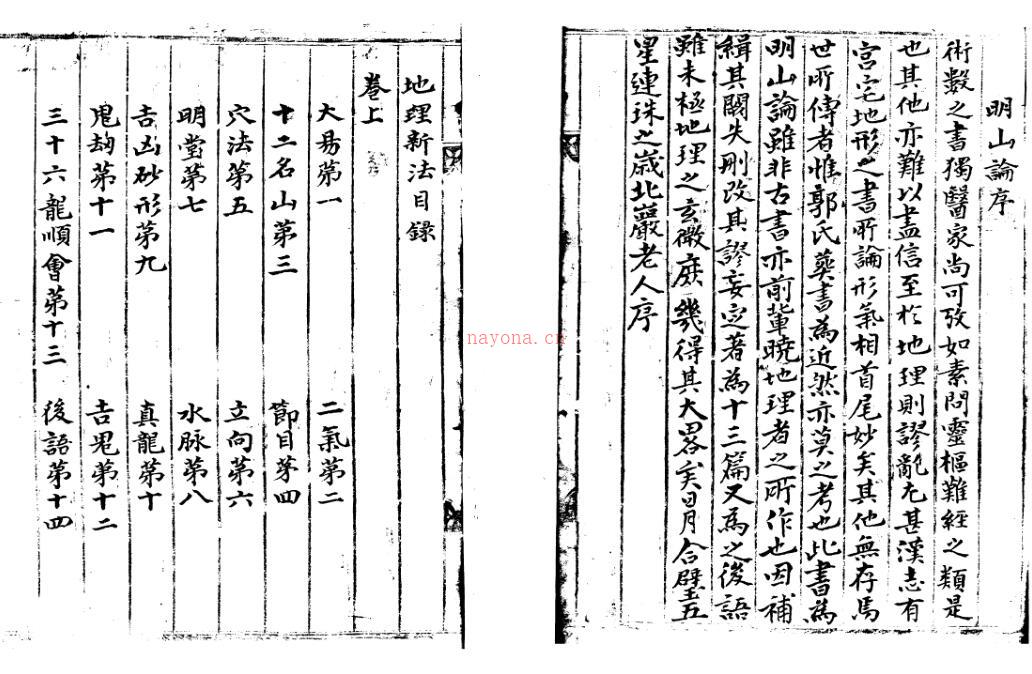 明山論序
術數之書獨醫家尚可攷如素問靈樞難經之類是
也其他亦難以盡信至於地理則謬亂尤甚漢志有
宮宅地形之書所論形氣相首尾妙矣其他無存焉
世所傳者惟郭氏葬書為近然亦莫之考也此書為
明山論雖非古書亦前輩曉地理者之所作也因補
緝其闕失刪改其謬妄定著為十三篇又為之後語
雖未極地理之玄微庶幾得其大畧矣日月合璧五
星連珠之歲北巖老人序
地理新法目錄
卷上
大易第一 二氣第二
十二名山第三 節目第四
穴法第五 立向第六
明堂第七 水脉第八
吉凶砂形第九 真龍第十
鬼刼第十一 吉鬼第十二
三十六龍順會第十三 後語第十四
nayona.cn